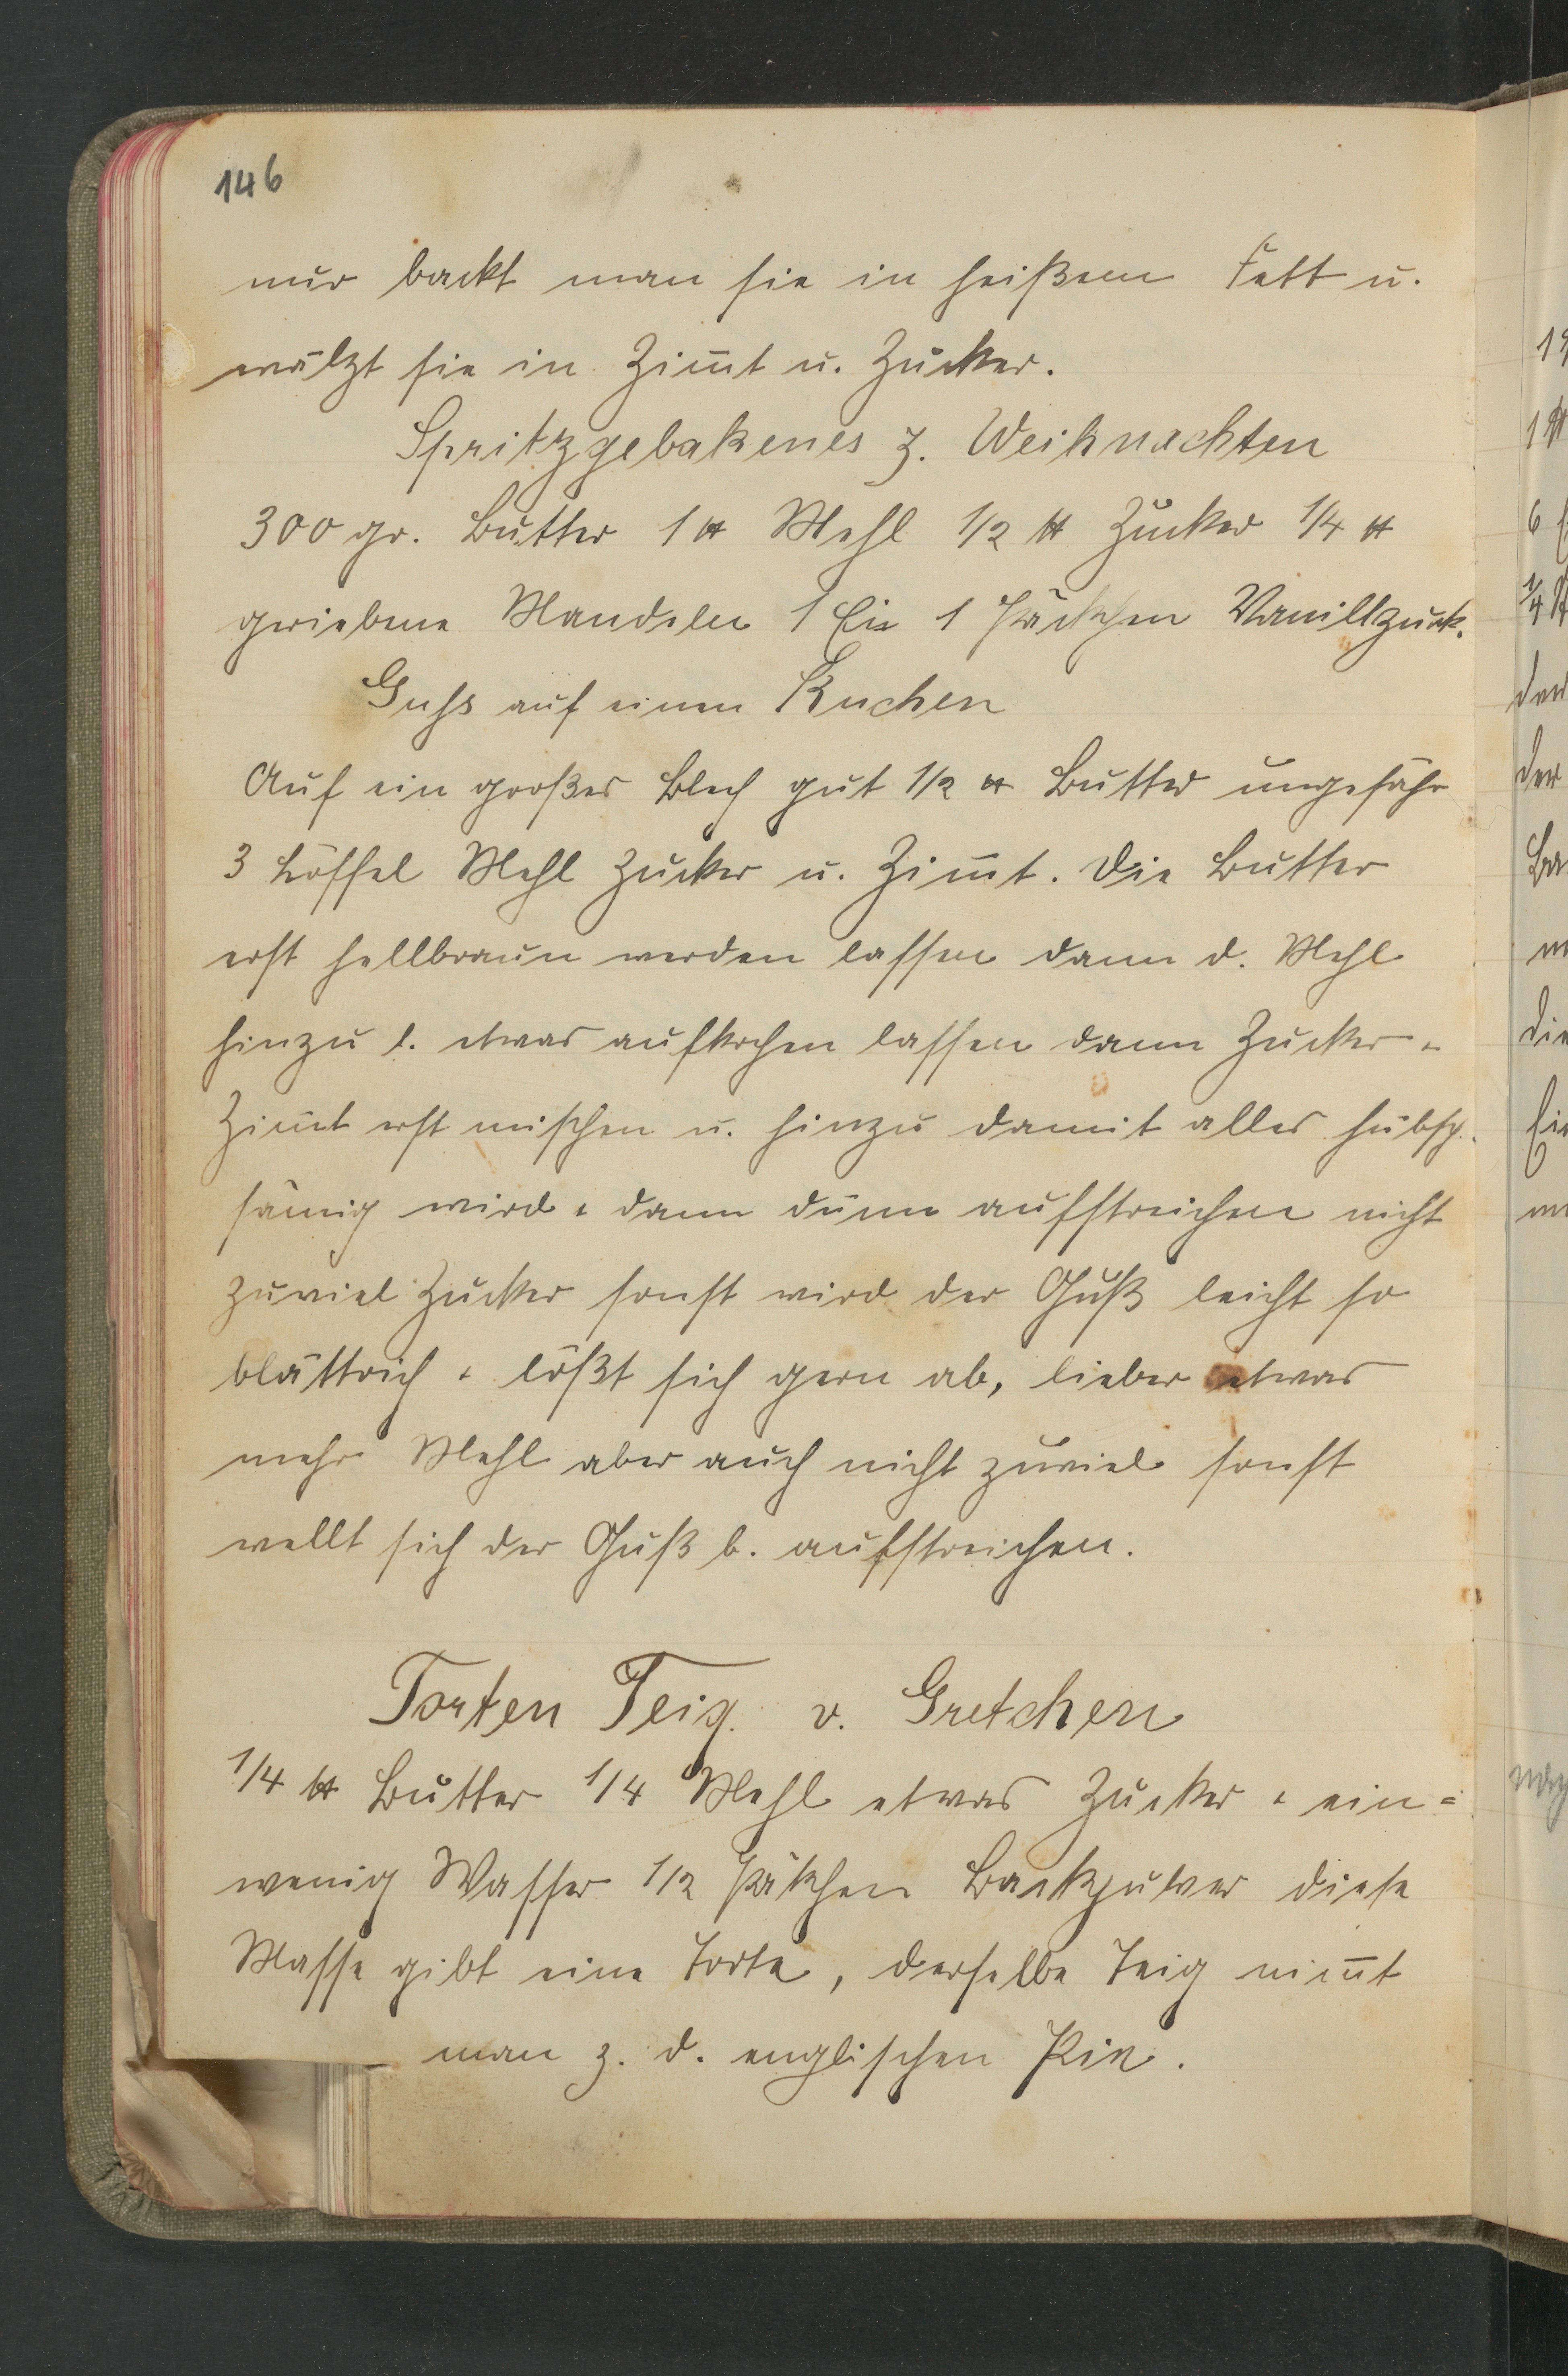 146
nur backt man sie in heißem Fett u.
wälzt sie in Zim̄t u. Zucker.
Spritzgebakenes z. Weihnachten
300 gr. Butter 1 ℔ Mehl 1/2 ℔ Zucker 1/4 ℔
geriebene Mandeln 1 Ei 1 Päckchen Vanillzuck.
Guhs auf einen Kuchen
Auf ein großes Blech gut 1/2 ℔ Butter ungefähr
3 Löffel Mehl Zucker u. Zim̄t. Die Butter
erst hellbraun werden lassen dann d. Mehl
hinzu l. etwas aufkochen lassen dann Zucker u
Zim̄t erst mischen u. hinzu damit alles hübsch.
sämig wird u dann dünn aufstreichen nicht
zuviel Zucker sonst wird der Guß leicht so
blättrich u lößt sich gern ab, lieber etwas
mehr Mehl aber auch nicht zuviel sonst
wellt sich der Guß b. aufstreichen.
Torten Teig v. Gretchen
1/4 ℔ Butter 1/4 Mehl etwas Zucker u ein=
wenig Wasser 1/2 Päkchen Backpulver diese
Masse gibt eine Torte, derselbe Teig nim̄t
man z. d. englischen Pie.
1 ℔
6
1/4 ℔
der
die